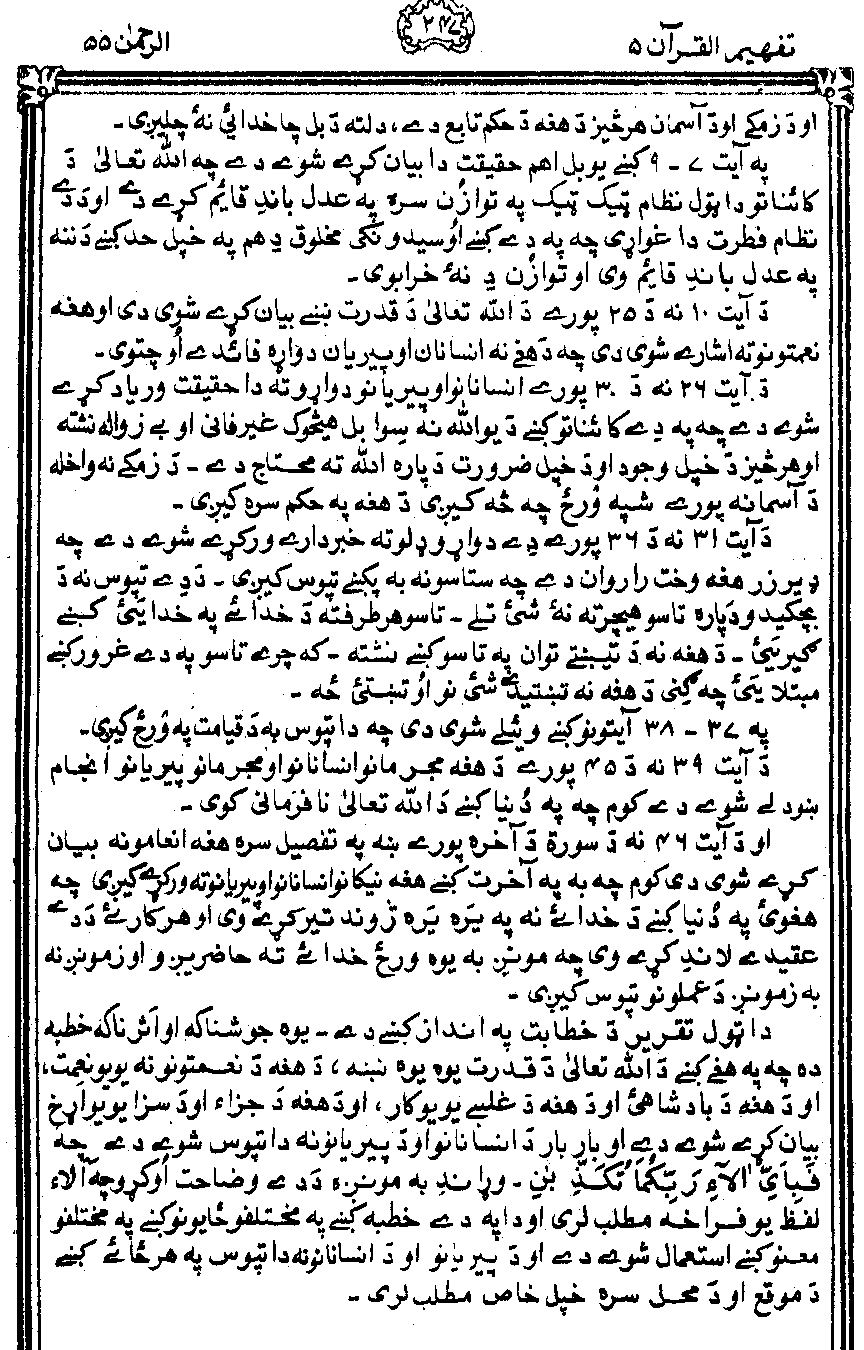 تفهیم القرآن ۵
۲۴۷
الرحمٰن ۵۵
او دَ زمکے او دَ آسمان هر څیز دَ هغه دَ حکم تابع دے، دلته دَ بل چا خدائی نهٔ چلیږی۔
په آیت ۷ - ۹ کښے یو بل اهم حقیقت دا بیان کړے شوے دے چه الله تعالیٰ دَ
کائناتو دا ټول نظام ټیک ټیک په توازُن سره په عدل باندِ قائِم کړے دے او دَ دے
نظام فطرت دا غواړی چه په دے کښے اوُسیدونکی مخلوق دِ هم په خپل حد کښے دَننه
په عدل باندِ قائِم وی او توازُن دِ نهٔ خرابوی۔
دَ آیت ۱۰ نه دَ ۲۵ پورے دَ الله تعالیٰ دَ قدرت ښے بیان کړے شوی دی او هغه
نعمتونو ته اشارے شوی دی چه دَ هغے نه انسانان او پیریان دواړه فائدے اُوچتوی۔
دَ آیت ۲۶ نه دَ ۳۰ پورے انسانانو او پیریانو دواړو ته دا حقیقت وریاد کړے
شوے دے چه په دے کائناتو کښے دَ یو الله نه سوا بل هیڅوک غیر فانی او بے زواله نشته
او هر څیز دَ خپل وجود او دَ خپل ضرورت دَ پاره الله ته محتاج دے۔ دَ زمکے نه واخله
دَ آسمانه پورے شپه وُرځ چه څه کیږی دَ هغه په حکم سره کیږی۔
دَ آیت ۳۱ نه دَ ۳۶ پورے دِے دواړو ډلو ته خبردارے ورکړے شوے دے چه
ډیر زر هغه وخت را روان دے چه ستاسو نه به پکښے تپوس کیږی۔ دَ دِے تپوس نه دَ
بچکیدو دَ پاره تاسو هیچرته نهٔ شئ تلے۔ تاسو هر طرفته دَ خدائے په خدایئ کښے
ګیر یئ۔ دَ هغه نه دَ تیښتے توان په تاسو کښے نشته۔ که چرے تاسو په دے غرور کښے
مبتلا یئ چه ګنی دَ هغه نه تښتیدے شئ نو اوُ تښتئ څه۔
په ۳۷ - ۳۸ آیتونو کښے وئیلے شوی دی چه دا تپوس به دَ قیامت په وُرځ کیږی۔
دَ آیت ۳۹ نه دَ ۴۵ پورے دَ هغه مجرمانو انسانانو او مجرمانو پیریانو انجام
ښودلے شوے دے کوم چه په دُنیا کښے دَ الله تعالیٰ نافرمانی کوی۔
او دَ آیت ۴۶ نه دَ سورة دَ آخره پورے ښه په تفصیل سره هغه انعامونه بیان
کړے شوی دی کوم چه به په آخرت کښے هغه نیکانو انسانانو او پیریانو ته ورکړے کیږی چه
هغوئ په دُنیا کښے دَ خدائے نه په یَره یَره ژوند تیر کړے وی او هر کار ئے دَ دے
عقیدے لاندِ کړے وی چه مونږ به یوه ورځ خدائے ته حاضریږو او زمونږ نه
به زمونږ دَ عملونو تپوس کیږی۔
دا ټول تقریر دَ خطابت په انداز کښے دے۔ یوه جوشناکه او اَثر ناکه خطبه
ده چه په هغے کښے دَ الله تعالیٰ دَ قدرت یوه یوه ښه، دَ هغه دَ نعمتونو نه یو یو نعمت،
او دَ هغه دَ بادشاهئ او دَ هغه دَ غلبے یو یو کار، او دَ هغه دَ جزاء او دَ سزا یو یو اړخ
بیان کړے شوے دے او بار بار دَ انسانانو او دَ پیریانو نه دا تپوس شوے دے چه
فَبِاَیِّ اٰلَآءِ رَبِّکُمَا تُکَذِّبٰنِ - وړاندِ به مونږه دَ دے وضاحت اُوکړو چه آلاء
لفظ یو فراخه مطلب لری او دا په دے خطبه کښے په مختلفو ځایونو کښے په مختلفو
معنو کښے استعمال شوے دے او دَ پیریانو او دَ انسانانو نه دا تپوس په هر ځائے کښے
دَ موقع او دَ محل سره خپل خاص مطلب لری۔